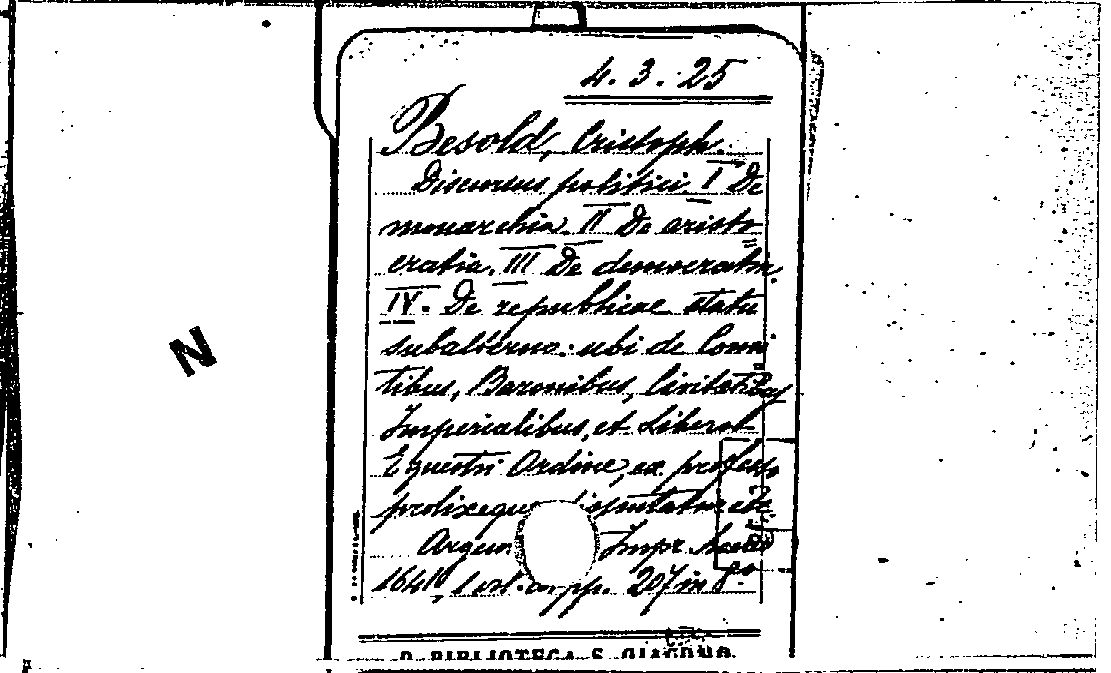 4. 3. 25
Besold, Cristoph.
Discursus politici. I De
monarchia. II De aristo
cratia. III De democratia.
IV. De reipublicae statu
subalterno: ubi de Comi
tibus, Baronibus, Civitatibus
Imperialibus, et Liberal
Equestri Ordine, ex professo
prolixeque disputatur etc.
Argen Impr.
1641, 1 vol. cm pp. 207 in 8.º
D. BIBLIOTECA S. GIACOMO
N